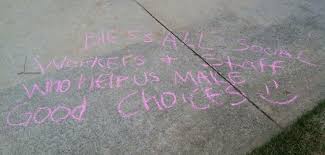 BLESS ALL Social
Workers + Staff
WHO HELP US MAKE
Good CHOICES :)